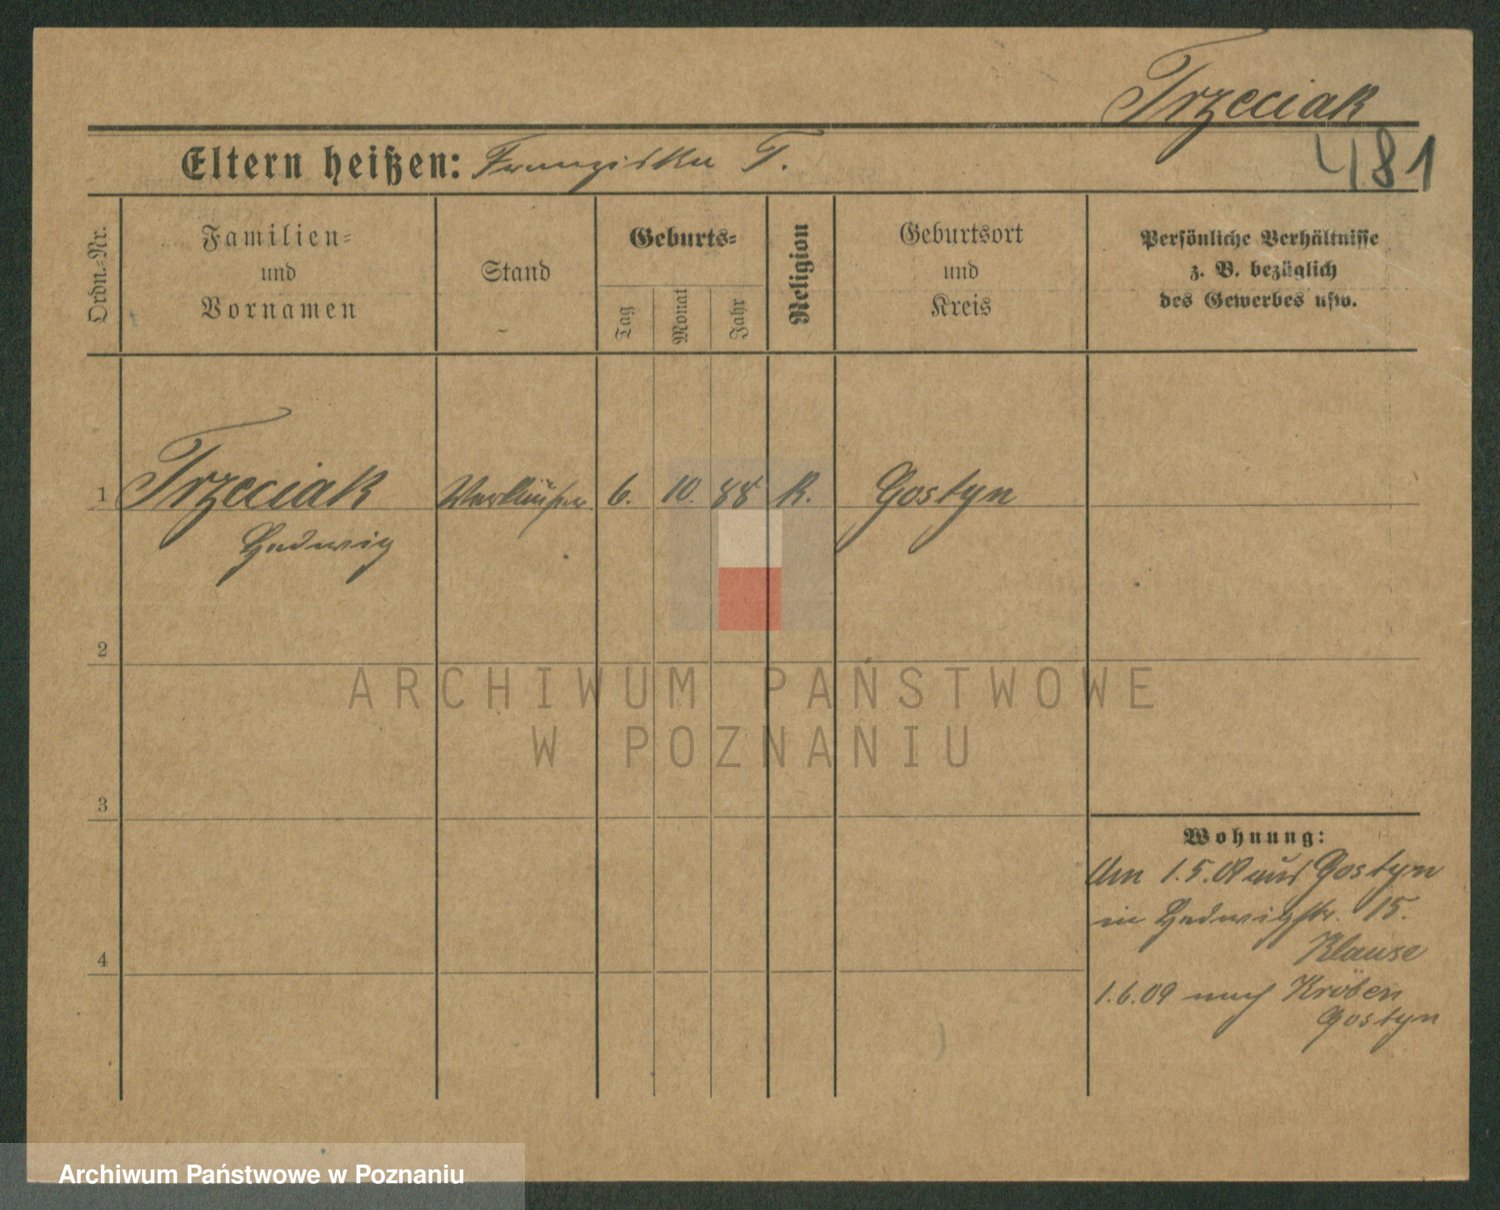 Trzeciak
481
Eltern heißen: Franziska T.
Ordn.-Nr.
Familien-
und
Vornamen
Stand
Geburts-
Tag
Monat
Jahr
Religion
Geburtsort
und
Kreis
Persönliche Verhältnisse
z. B. bezüglich
des Gewerbes usw.
1 Trzeciak Verkäufer. 6. 10. 88 K. Gostyn
Hedwig
2
3
4
Wohnung:
Am 1.5.09 aus Gostyn
in Hedwigstr. 15.
Klause
1.6.09 nach Kröben
Gostyn
ARCHIWUM PAŃSTWOWE
W POZNANIU
Archiwum Państwowe w Poznaniu